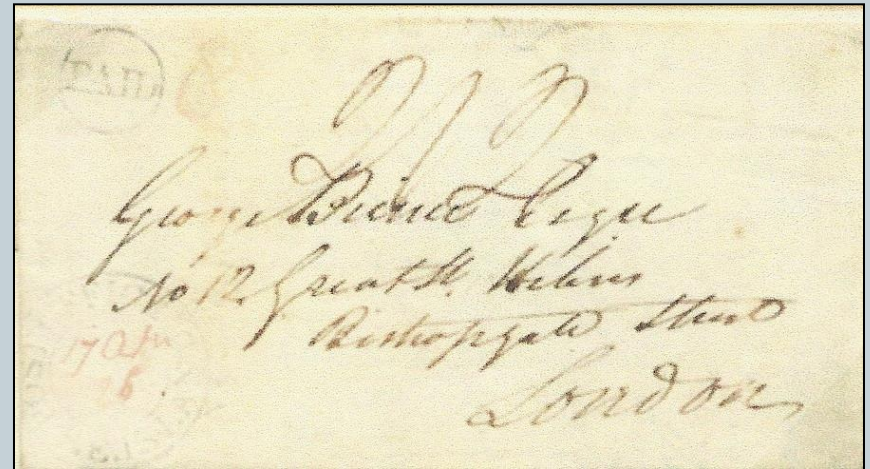 PAID
George Esqre
No 12 Great St. Helens
Bishopsgate Street
London
17 Ap